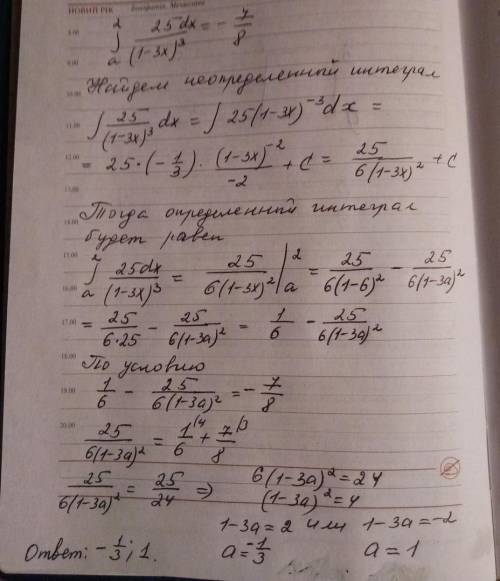 НОВИЙ РІК
8.00
9.00
10.00
11.00
12.00
13.00
14.00
15.00
16.00
17.00
18.00
19.00
20.00
∫_a^2 25dx/(1-3x)^3 = -7/8
Найдем неопределенный интеграл
∫ 25/(1-3x)^3 dx = ∫ 25(1-3x)^-3 dx =
= 25·(-1/3)·(1-3x)^-2/-2 + C = 25/6(1-3x)^2 + C
Тогда определенный интеграл
будет равен
∫_a^2 25dx/(1-3x)^3 = 25/6(1-3x)^2 |_a^2 = 25/6(1-6)^2 - 25/6(1-3a)^2
= 25/6·25 - 25/6(1-3a)^2 = 1/6 - 25/6(1-3a)^2
По условию
1/6 - 25/6(1-3a)^2 = -7/8
25/6(1-3a)^2 = 1/6 \4 + 7/8 \3
25/6(1-3a)^2 = 25/24 => 6(1-3a)^2 = 24
(1-3a)^2 = 4
1-3a = 2 или 1-3a = -2
Ответ: -1/3; 1. a = -1/3 a = 1